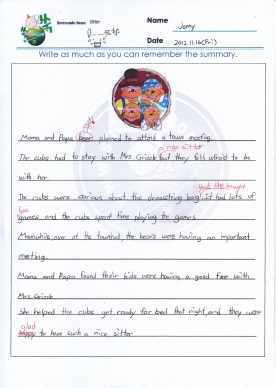 Berenstain Bears Sitter
Name Jenny
Date 2012.11.16(Fri)
Write as much as you can remember the summary.
Mama and Papa bears planned to attend a town meeting.
a new sitter
The cubs had to stay with Mrs. Grizzle but they felt afraid to be
with her.
that she brought.
The cubs were curious about the drawstring bag. It had lots of
fun
games and the cubs spent time playing the games.
Meanwhile, over at the townhall, the bears were having an important
meeting.
Mama and Papa found their kids were having a good time with
Mrs. Grizzle
She helped the cubs get ready for bed that night, and they were
glad
happy to have such a nice sitter.